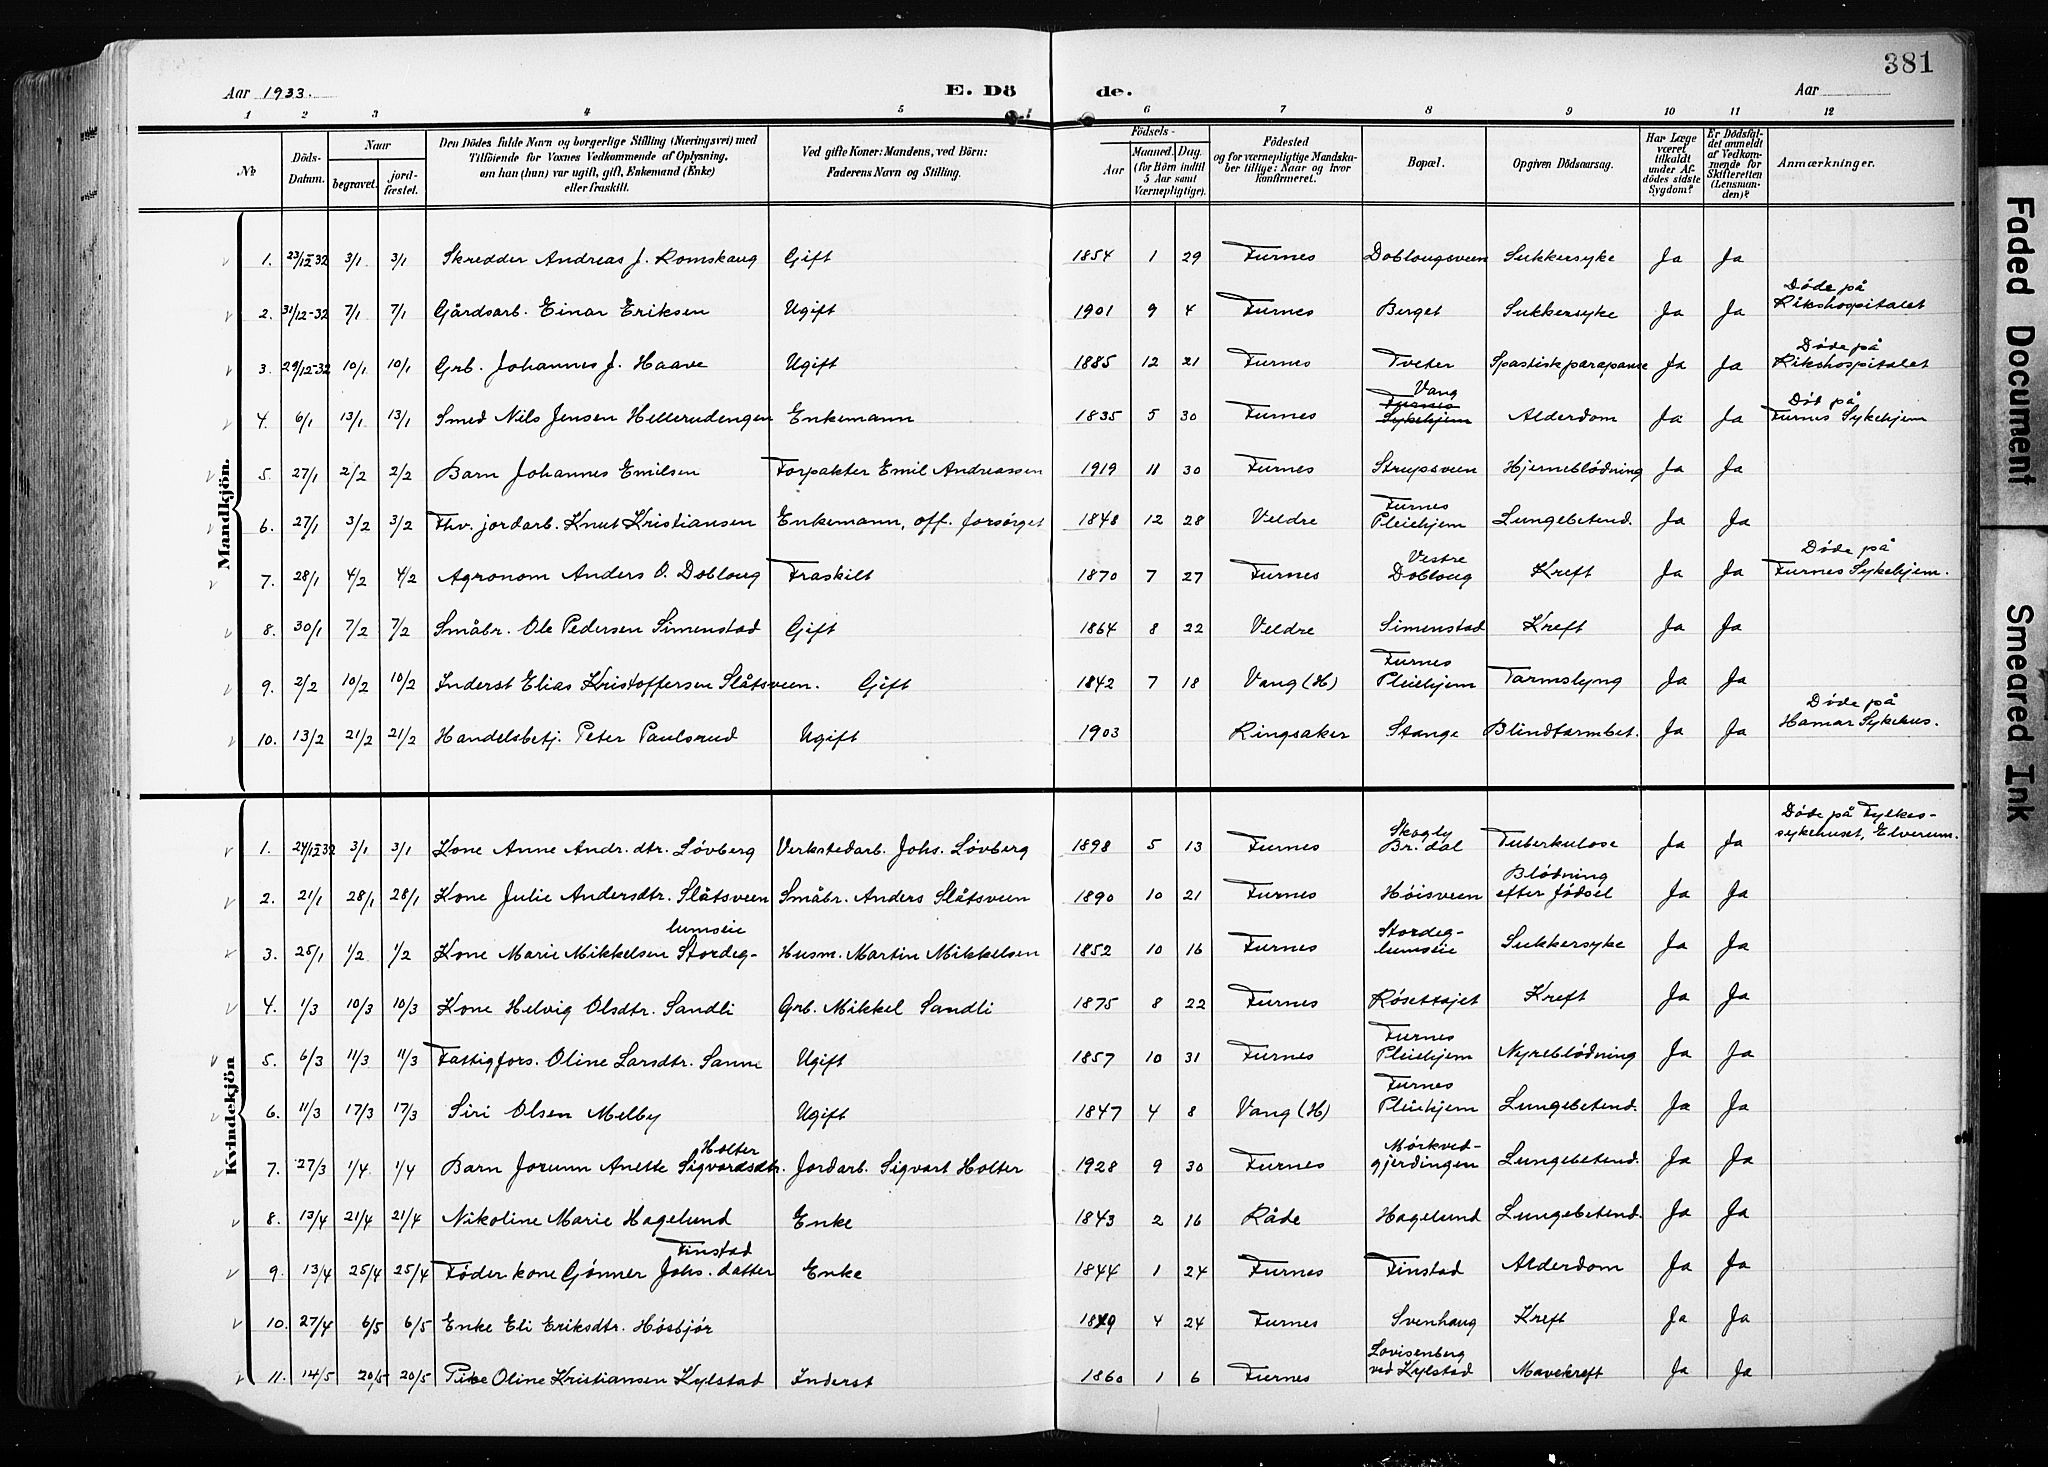 381
Aar 1933. E. Dö de. Aar
1 2 3 4 5 6 7 8 9 10 11 12
No
Döds-Datum.
Naar
begravet. jordfæstet.
Den Dödes fulde Navn og borgerlige Stilling (Næringsvei) med
Tilföiende for Voxnes Vedkommende af Oplysning,
om han (hun) var ugift, gift, Enkemand (Enke)
eller fraskilt.
Ved gifte Koner: Mandens, ved Börn:
Faderens Navn og Stilling.
Födsels-
Aar
Maaned. Dag.
(for Börn indtil
5 Aar samt
Værnepligtige).
Födested
og for værnepligtige Mandska-
ber tillige: Naar og hvor
konfirmeret.
Bopæl.
Opgiven Dödsaarsag.
Har Læge
været
tilkaldt
under Af-
dödes sidste
Sygdom?
Er Dödsfal-
det anmeldt
af Vedkom-
mende for
Skifteretten
(Lensman-
den)?
Anmærkninger.
Mandkjön.
1. 23/12-32 3/1 3/1 Skredder Andreas J. Romskaug Gift 1854 1 29 Furnes Doblougsveen Sukkersyke Ja Ja
2. 31/12-32 7/1 7/1 Gårdsarb. Einar Eriksen Ugift 1901 9 4 Furnes Berget Sukkersyke Ja Ja Døde på Rikshospitalet
3. 29/12-32 10/1 10/1 Grb. Johannes J. Haave Ugift 1885 12 21 Furnes Tveter Spastisk parapares Ja Ja Døde på Rikshospitalet
4. 6/1 13/1 13/1 Smed Nils Jensen Hellerudengen Enkemann 1835 5 30 Furnes Vang Furnes Sykehjem Alderdom Ja Ja Død på Furnes Sykehjem
5. 27/1 2/2 2/2 Barn Johannes Emilsen Forpakter Emil Andreassen 1919 11 30 Furnes Strupsveen Hjerneblødning Ja Ja
6. 27/1 3/2 3/2 Fhv. jordarb. Knut Kristiansen Enkemann, off. forsørget 1848 12 28 Veldre Furnes Pleiehjem Lungebetend. Ja Ja
7. 28/1 4/2 4/2 Agronom Anders O. Dobloug Fraskilt 1870 7 27 Furnes Vestre Dobloug Kreft Ja Ja Døde på Furnes Sykehjem.
8. 30/1 7/2 7/2 Småbr. Ole Pedersen Simenstad Gift 1864 8 22 Veldre Simenstad Kreft Ja Ja
9. 2/2 10/2 10/2 Inderst Elias Kristoffersen Slåtsveen. Gift 1842 7 18 Vang (H) Furnes Pleiehjem Tarmslyng Ja Ja
10. 13/2 21/2 21/2 Handelsbetj. Peter Paulsrud Ugift 1903 Ringsaker Stange Blindtarmbet. Ja Ja Døde på Hamar Sykehus.
Kvindekjön
1. 24/12-32 3/1 3/1 Kone Anne Andr. dtr. Løvberg Verkstedarb. Johs. Løvberg 1898 5 13 Furnes Skogly Br. dal Tuberkulose Ja Ja Døde på Fylkes-sykehuset, Elverum.
2. 21/1 28/1 28/1 Kone Julie Andersdtr. Slåtsveen Småbr. Anders Slåtsveen 1890 10 21 Furnes Høisveen Blødning efter fødsel Ja Ja
3. 25/1 1/2 1/2 Kone Marie Mikkelsen Stordeg-lumseie Husm. Martin Mikkelsen 1852 10 16 Furnes Stordeg-lumseie Sukkersyke Ja Ja
4. 1/3 10/3 10/3 Kone Helvig Olsdtr. Sandli Grb. Mikkel Sandli 1875 8 22 Furnes Røsettajet Kreft Ja Ja
5. 6/3 11/3 11/3 Fattigfors. Oline Larsdtr. Sanne Ugift 1857 10 31 Furnes Furnes Pleiehjem Nyreblødning Ja Ja
6. 11/3 17/3 17/3 Siri Olsen Melby Ugift 1847 4 8 Vang (H) Furnes Pleiehjem Lungebetend. Ja Ja
7. 27/3 1/4 1/4 Barn Jorunn Anette Sigvardsdtr. Holter Jordarb. Sigvart Holter 1928 9 30 Furnes Mørkved-gjerdingen Lungebetend. Ja Ja
8. 13/4 21/4 21/4 Nikoline Marie Hagelund Enke 1843 2 16 Råde Hagelund Lungebetend. Ja Ja
9. 13/4 25/4 25/4 Føderkone Gønner Johs. datter Finstad Enke 1844 1 24 Furnes Finstad Alderdom Ja Ja
10. 27/4 6/5 6/5 Enke Eli Eriksdtr. Høsbjør 4 24 Furnes Svenhaug Kreft Ja Ja
11. 14/5 20/5 20/5 Pike Oline Kristiansen Kylstad Inderst 1860 1 6 Furnes Lovisenberg ved Kylstad Mavekreft Ja Ja
Faded Document
Smeared Ink